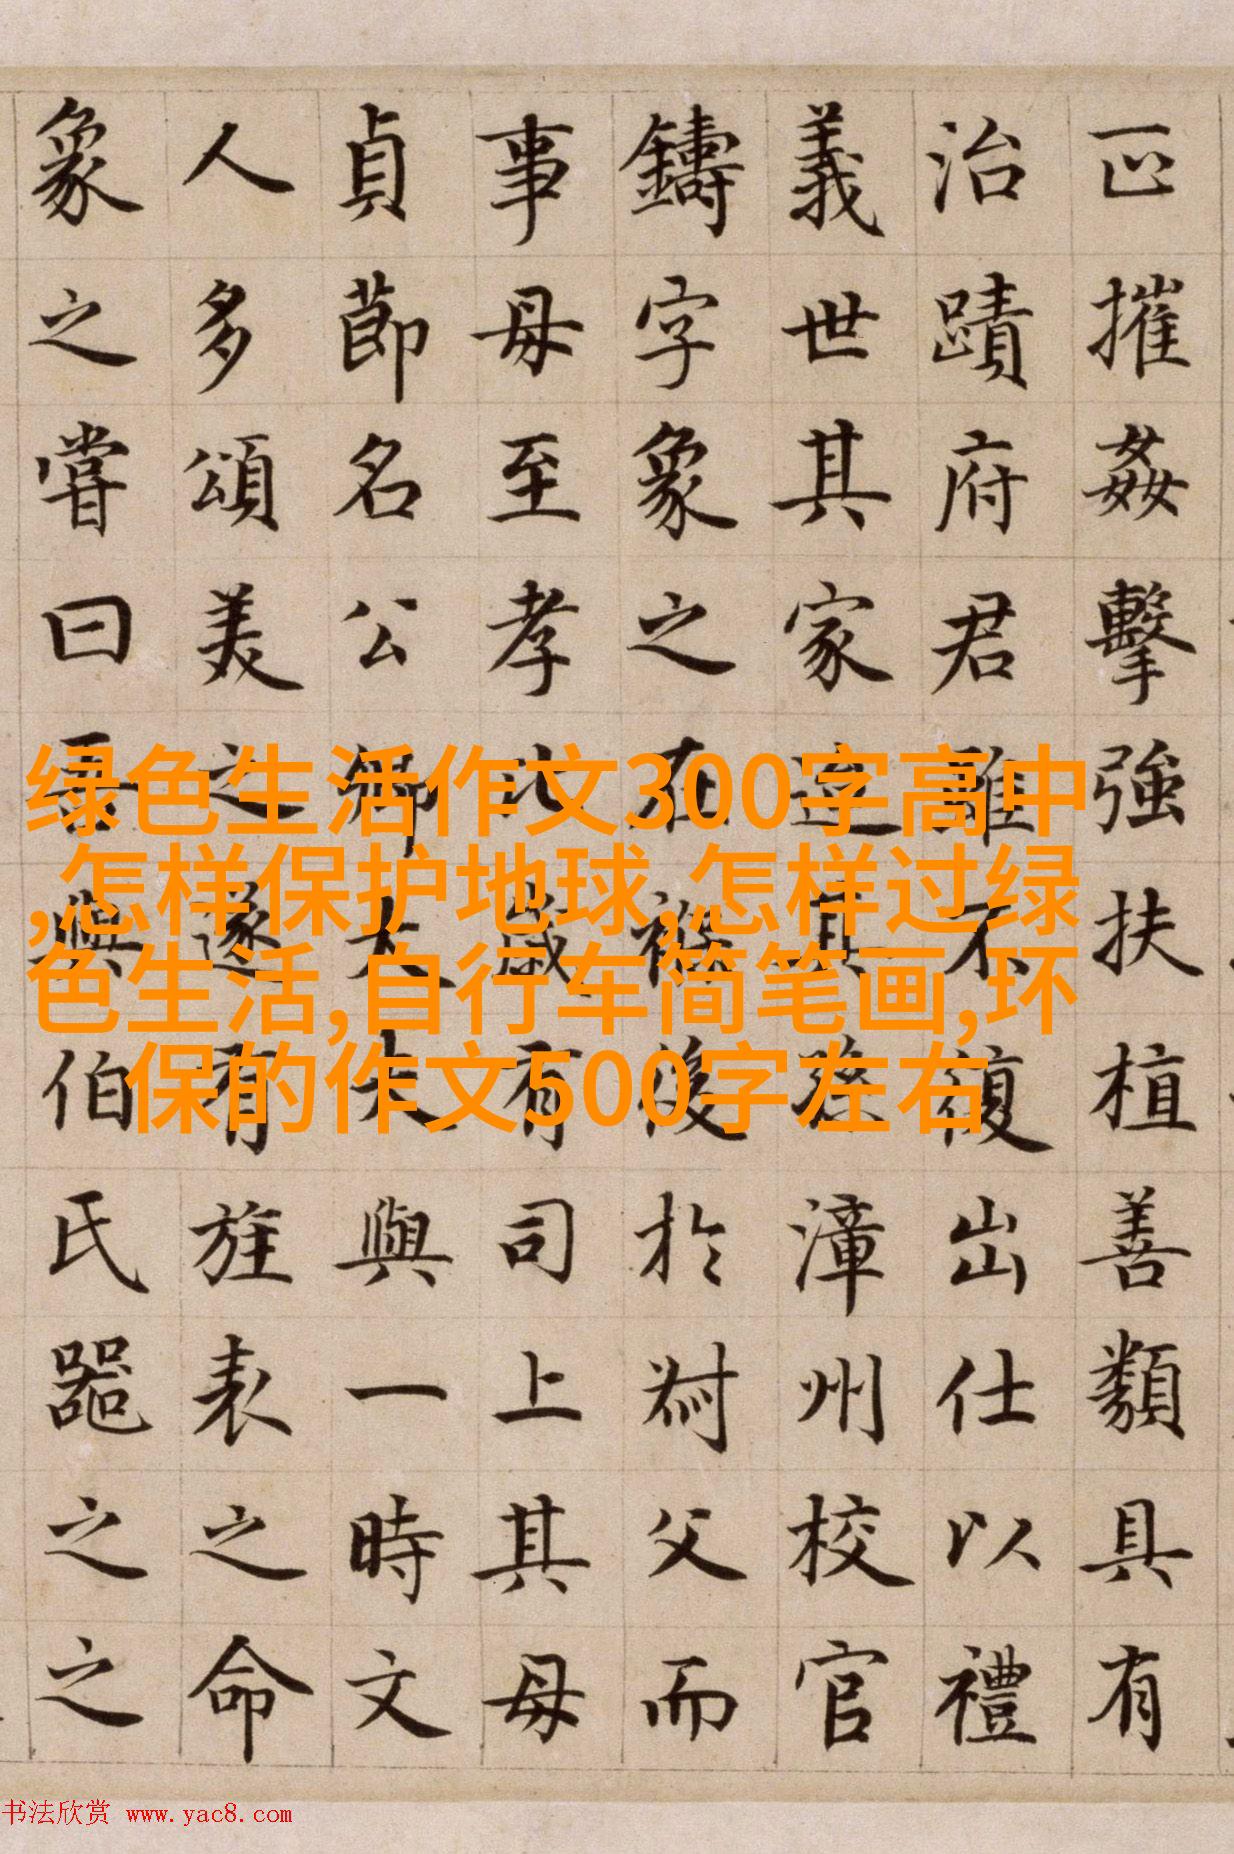 摧姦擊強扶植善類具有
治蹟府君雖不復出仕以禮
義世其家其漳州校官
鑄字象之在後於父而
事母至孝比歲有司上其母
貞節名公卿大夫與一時文
人多頌美之遂有旌表之命
象之嘗曰吾與伯氏噐之之
绿色生活作文300字高中
,怎样保护地球,怎样过绿
色生活,自行车简笔画,环
保的作文500字左右
书法欣赏 www.yac8.com